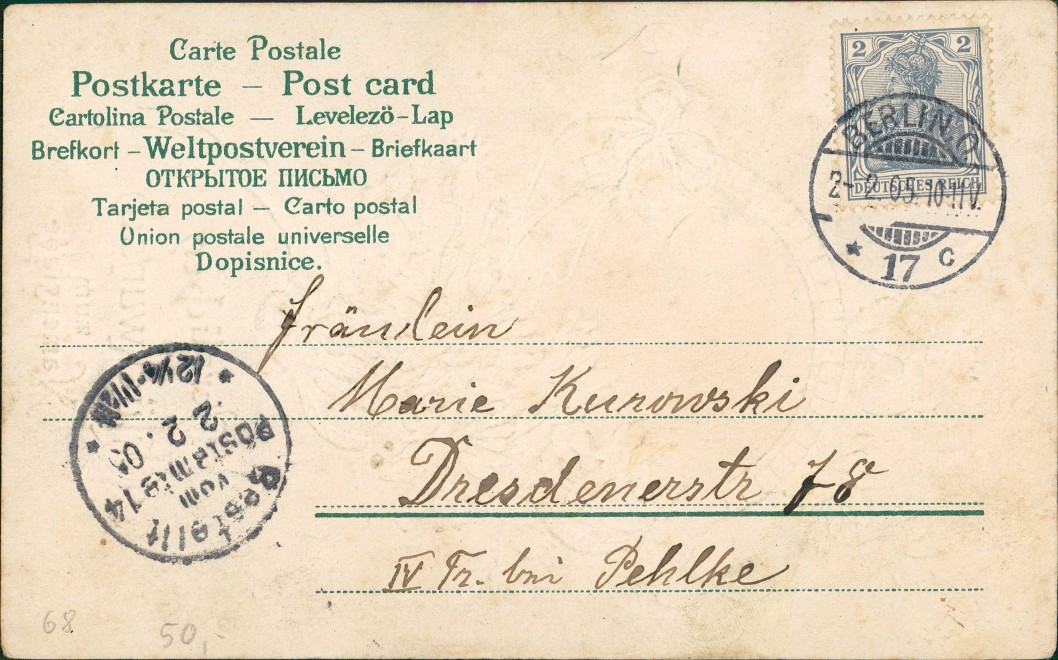 Carte Postale
Postkarte – Post card
Cartolina Postale — Levelezö-Lap
Brefkort – Weltpostverein – Briefkaart
ОТКРЫТОЕ ПИСЬМО
Tarjeta postal — Carto postal
Union postale universelle
Dopisnice.
2 2
DEUTSCHES REICH
BERLIN O
2-2.05.10-11V.
* 17 c
Fräulein
Marie Kurowski
Dresdenerstr 78
IV Tr. bei Pehlke
Bestellt
vom
Postamte 14
2.2.05
* 12¼-1½N *
68
50,-